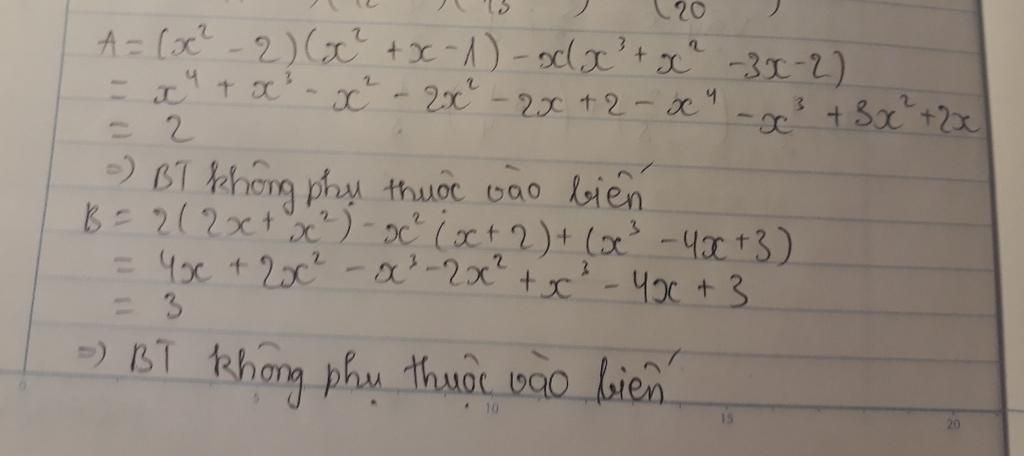 (20 )
A = (x² - 2)(x² + x - 1) - x(x³ + x² - 3x - 2)
= x⁴ + x³ - x² - 2x² - 2x + 2 - x⁴ - x³ + 3x² + 2x
= 2
=) BT không phụ thuộc vào biến
B = 2(2x + x²) - x²(x + 2) + (x³ - 4x + 3)
= 4x + 2x² - x³ - 2x² + x³ - 4x + 3
= 3
=) BT không phụ thuộc vào biến
0 5 10 15 20